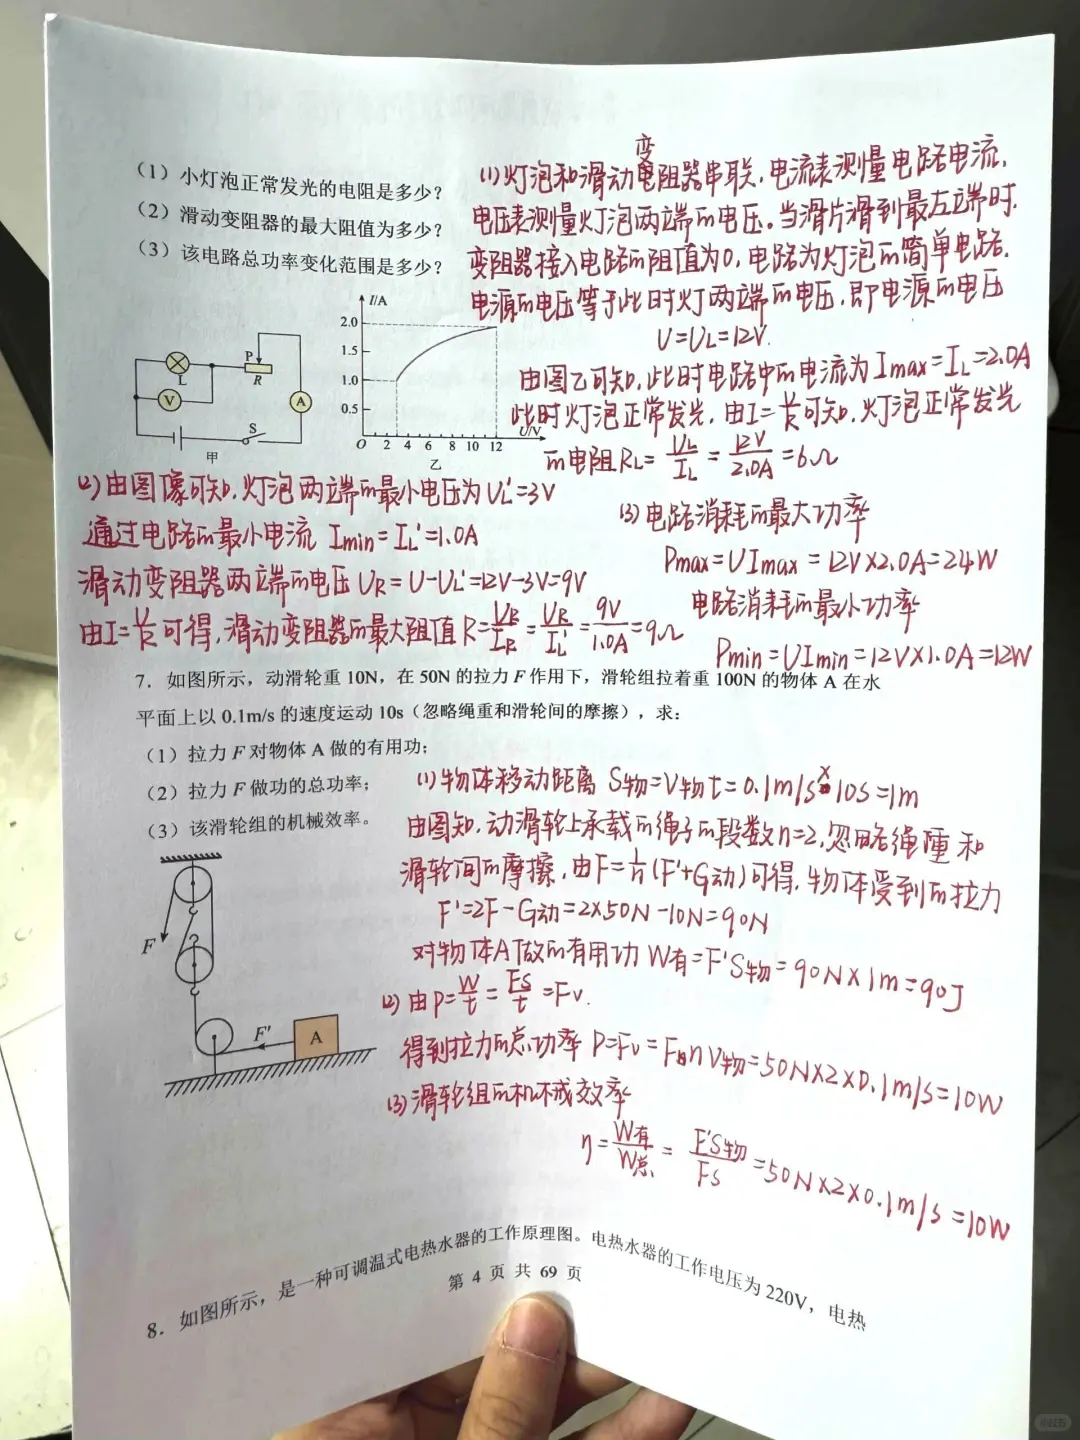 (1) 小灯泡正常发光的电阻是多少？
(2) 滑动变阻器的最大阻值为多少？
(3) 该电路总功率变化范围是多少？
(1) 灯泡和滑动变阻器串联，电流表测量电路电流，
电压表测量灯泡两端的电压。当滑片滑到最左端时，
变阻器接入电路的阻值为0，电路为灯泡的简单电路，
电源的电压等于此时灯两端的电压，即电源的电压
U=UL=12V.
由图乙可知，此时电路中的电流为 Imax=IL=2.0A
此时灯泡正常发光，由I=U/R可知，灯泡正常发光
的电阻RL=UL/IL=12V/2.0A=6Ω
L
V
P
R
A
S
甲
I/A
2.0
1.5
1.0
0.5
O 2 4 6 8 10 12
U/V
乙
(2) 由图像可知，灯泡两端的最小电压为UL'=3V
通过电路的最小电流 Imin=IL'=1.0A
滑动变阻器两端的电压UR=U-UL'=12V-3V=9V
由I=U/R可得，滑动变阻器的最大阻值R=UR/IR=UR/IL'=9V/1.0A=9Ω
(3) 电路消耗的最大功率
Pmax=UImax=12V×2.0A=24W
电路消耗的最小功率
Pmin=UImin=12V×1.0A=12W
7．如图所示，动滑轮重 10N，在 50N 的拉力 F 作用下，滑轮组拉着重 100N 的物体 A 在水
平面上以 0.1m/s 的速度运动 10s（忽略绳重和滑轮间的摩擦），求：
（1）拉力 F 对物体 A 做的有用功；
（2）拉力 F 做功的总功率；
（3）该滑轮组的机械效率。
(1) 物体移动距离 S物=V物t=0.1m/s×10s=1m
由图知，动滑轮上承载的绳子的段数n=2，忽略绳重和
滑轮间的摩擦，由F=1/n(F'+G动)可得，物体受到的拉力
F'=2F-G动=2×50N-10N=90N
对物体A做的有用功 W有=F'S物=90N×1m=90J
(2) 由P=W/t=Fs/t=Fv.
得到拉力的总功率 P=Fv=FnV物=50N×2×0.1m/s=10W
(3) 滑轮组的机械效率
η=W有/W总=F'S物/Fs=50N×2×0.1m/s=10W
F
F'
A
8．如图所示，是一种可调温式电热水器的工作原理图。电热水器的工作电压为 220V，电热
第 4 页 共 69 页
小红书